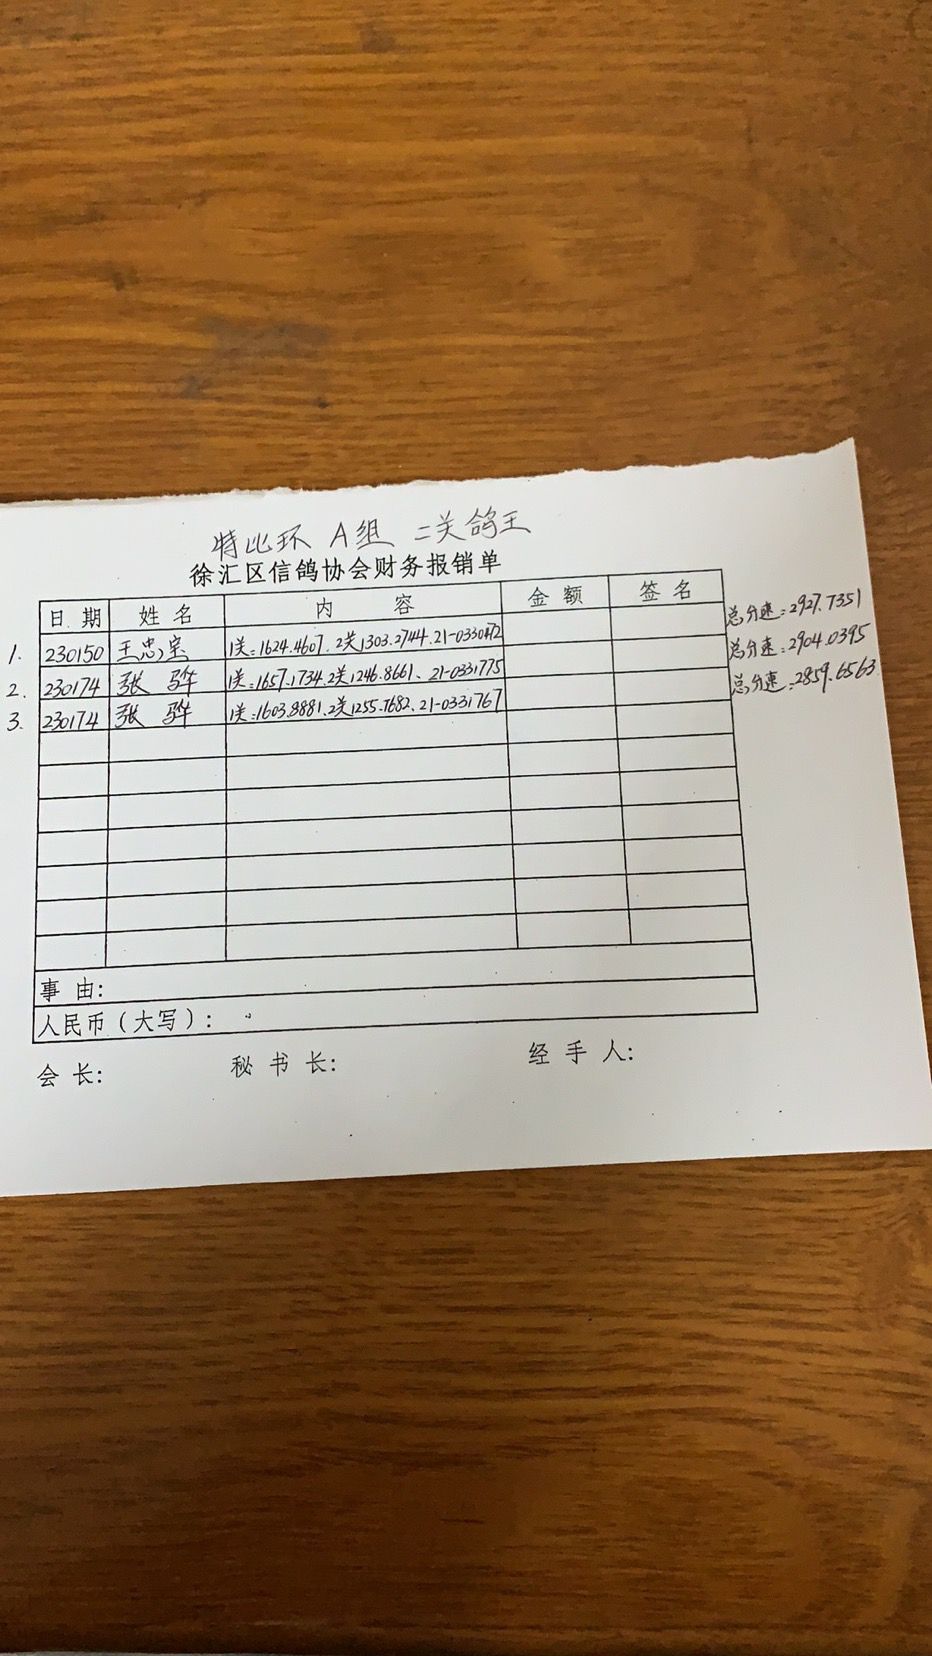 特比环 A组 二关鸽王
徐汇区信鸽协会财务报销单
日 期 姓 名 内 容 金 额 签 名
1. 230150 王忠宝 1关:1624.4607. 2关1303.2744. 21-0330472 总分速:2927.7351
2. 230174 张 骅 1关:1657.1734. 2关1246.8661、21-0331775 总分速:2904.0395
3. 230174 张 骅 1关:1603.8881. 2关1255.7682. 21-0331767 总分速:2859.6563
事 由:
人民币(大写):
会 长: 秘 书 长: 经 手 人: